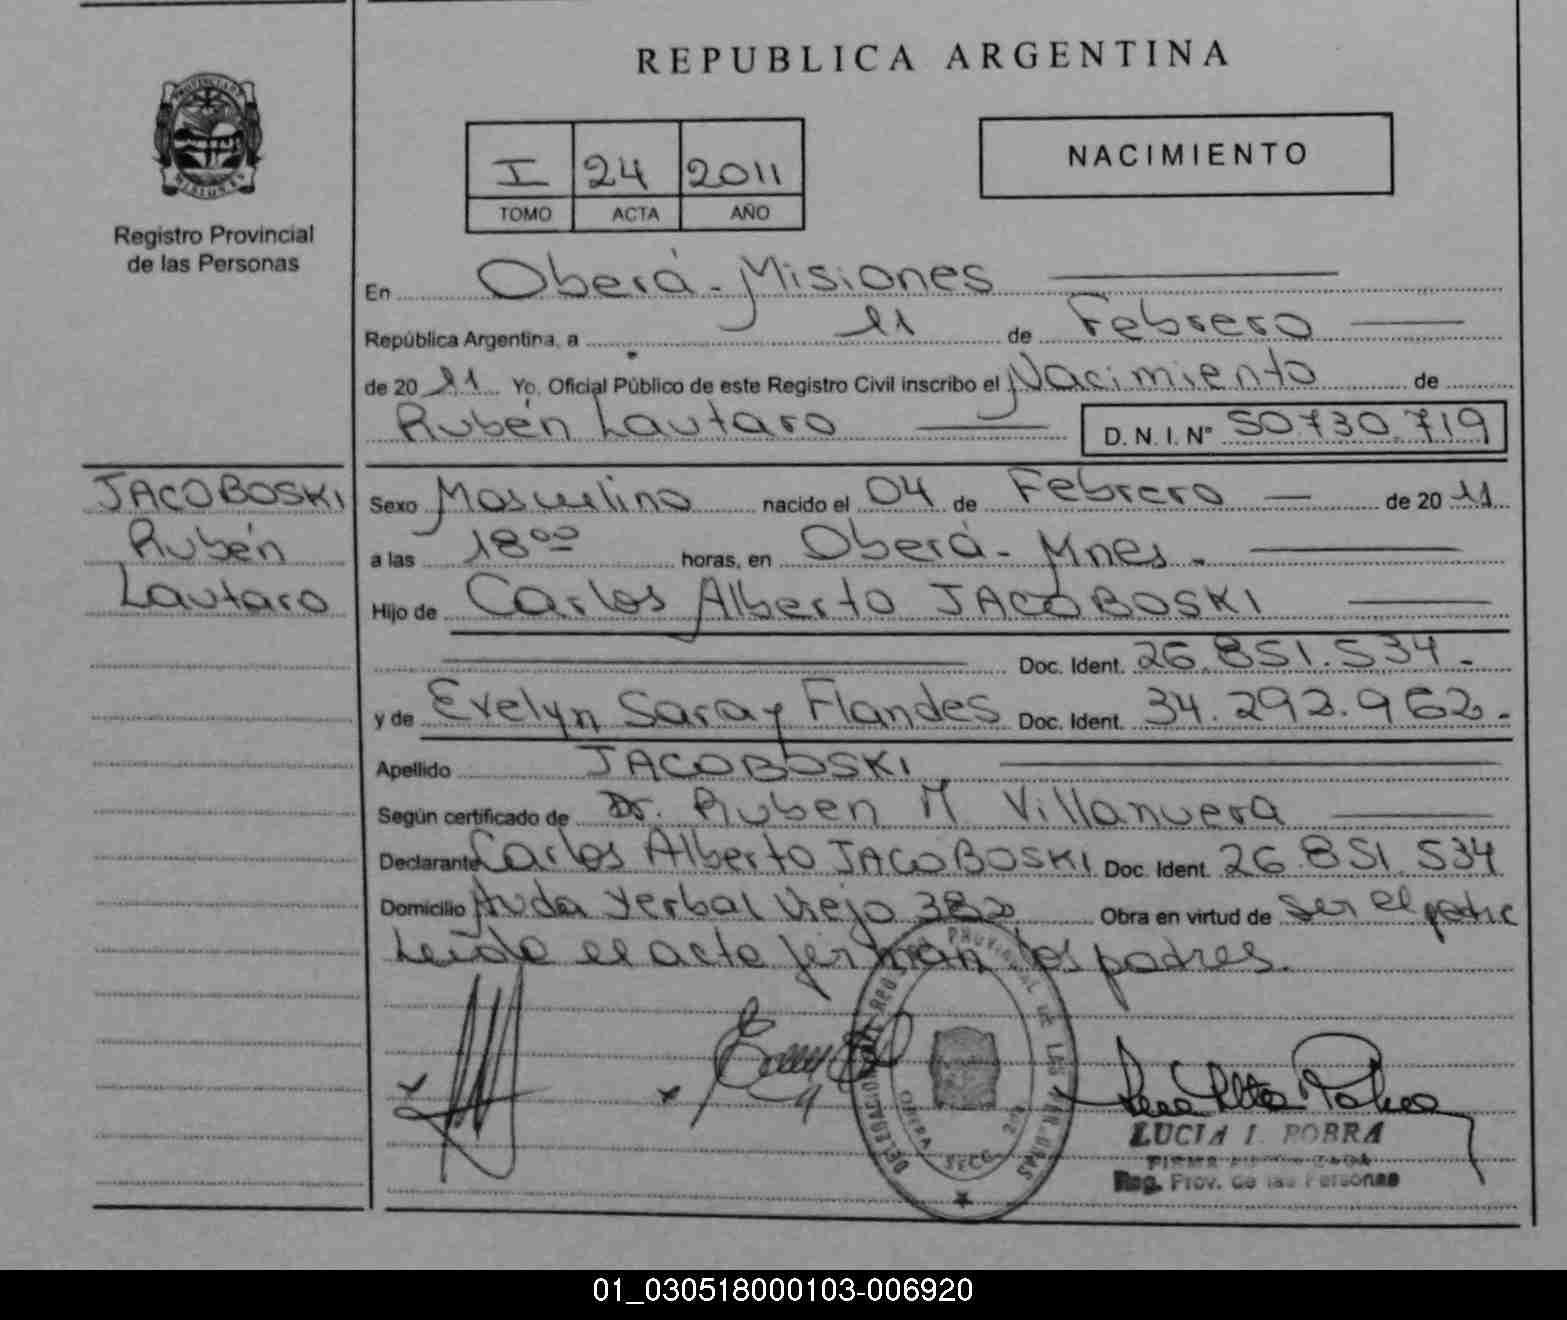 REPUBLICA ARGENTINA
PROVINCIA DE
MISIONES
Registro Provincial
de las Personas
I 24 2011
TOMO ACTA AÑO
NACIMIENTO
En Oberá - Misiones
República Argentina, a 11 de Febrero
de 20 11 Yo, Oficial Público de este Registro Civil inscribo el Nacimiento de
Rubén Lautaro D. N. I. Nº 50730.719
JACOBOSKI
Rubén
Lautaro
Sexo Masculino nacido el 04 de Febrero de 20 11
a las 18 00 horas, en Oberá - Mnes.-
Hijo de Carlos Alberto JACOBOSKI
Doc. Ident. 26.851.534.-
y de Evelyn Saray Flandes Doc. Ident. 34.292.962.-
Apellido JACOBOSKI
Según certificado de Dr. Ruben M Villanueva
Declarante Carlos Alberto JACOBOSKI Doc. Ident. 26.851.534
Domicilio Avda Yerbal Viejo 382 Obra en virtud de ser el padre
Leida el acta firman los padres.
DELEGACION REG PROVINCIAL DE LAS PERSONAS
OBERA SECC
LUCIA I. POBRA
FIRMA
Reg. Prov. de las Personas
01_030518000103-006920